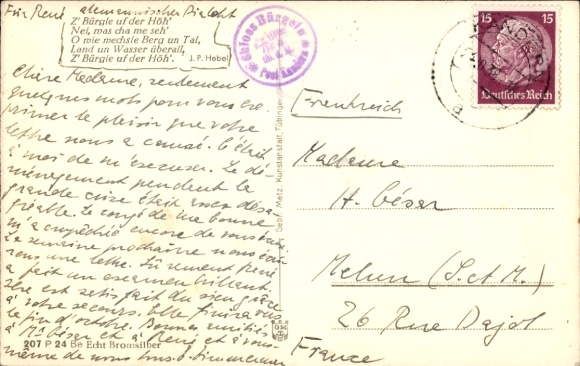 Für René allemannischer Dialekt
Z' Bürgle uf der Höh'
Nei, mas cha me seh'
O mie mechsle Berg un Tal,
Land un Wasser überall,
Z' Bürgle uf der Höh'. J. P. Hebel
Schloss Bürgeln
Post Kandern
15 15
Deutsches Reich
Chère Madame, seulement
quelques mots pour vous ex-
primer le plaisir que votre
lettre nous a causé. C'était
à moi de m'excuser. Le dé-
ménagement pendant la
grande crise était assez désa-
gréable. Le congé de ma bonne
m'a empêchée encore de vous écrire.
La semaine prochaine nous écri-
rons une lettre. Sûrement René
a fait un examen brillant.
est satisfait du sien grâce
à votre secours. Elle finira vers
la fin d'octobre. Bonnes amitiés
à Mr César et à René et à vous-
même de nous tous.
Frankreich
Madame
H. César
Melun (S. et M.)
26 Rue Dajot
France
Gebr. Metz, Kunstanstalt, Tübingen
207 P 24 Be Echt Bromsilber